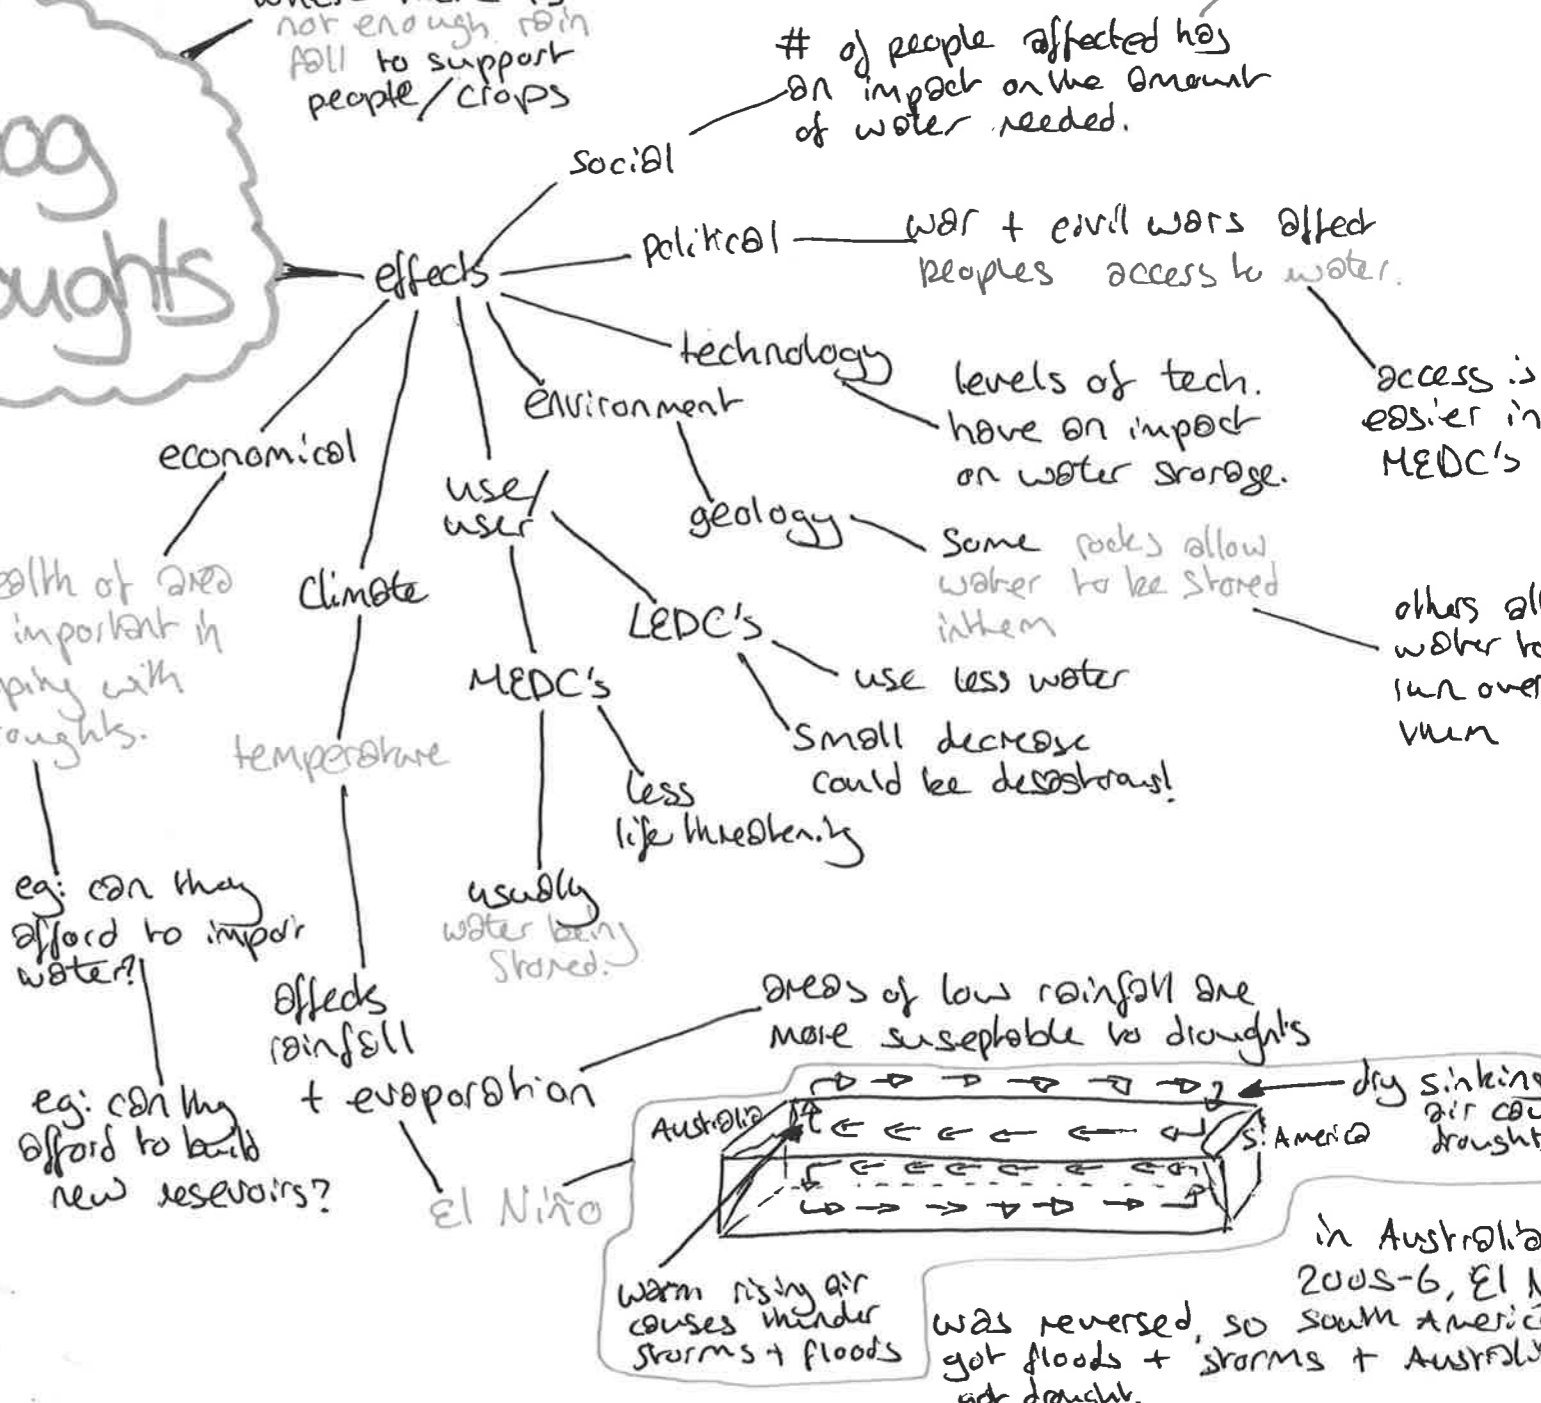 not enough rain
fall to support
people/crops
# of people affected has
an impact on the amount
of water needed.
social
political
war + civil wars affect
peoples access to water.
access is
easier in
MEDC's
effects
technology
levels of tech.
have an impact
on water storage.
environment
geology
Some rocks allow
water to be stored
in them
others
water to
run over
them
economical
area
important in
with
eg: can they
afford to import
water?
eg: can they
afford to build
new reservoirs?
Climate
temperature
affects
rainfall
+ evaporation
use/
user
LEDC's
use less water
Small decrease
could be desastrous!
MEDC's
less
life threatening
usually
water being
Stored.
areas of low rainfall are
more suseptable to droughts
El Niño
Australia
S. America
dry sinking
air
drought
warm rising air
causes thunder
storms + floods
in Australia
2005-6, El
was reversed, so South America
got floods + storms + Australia
got drought.